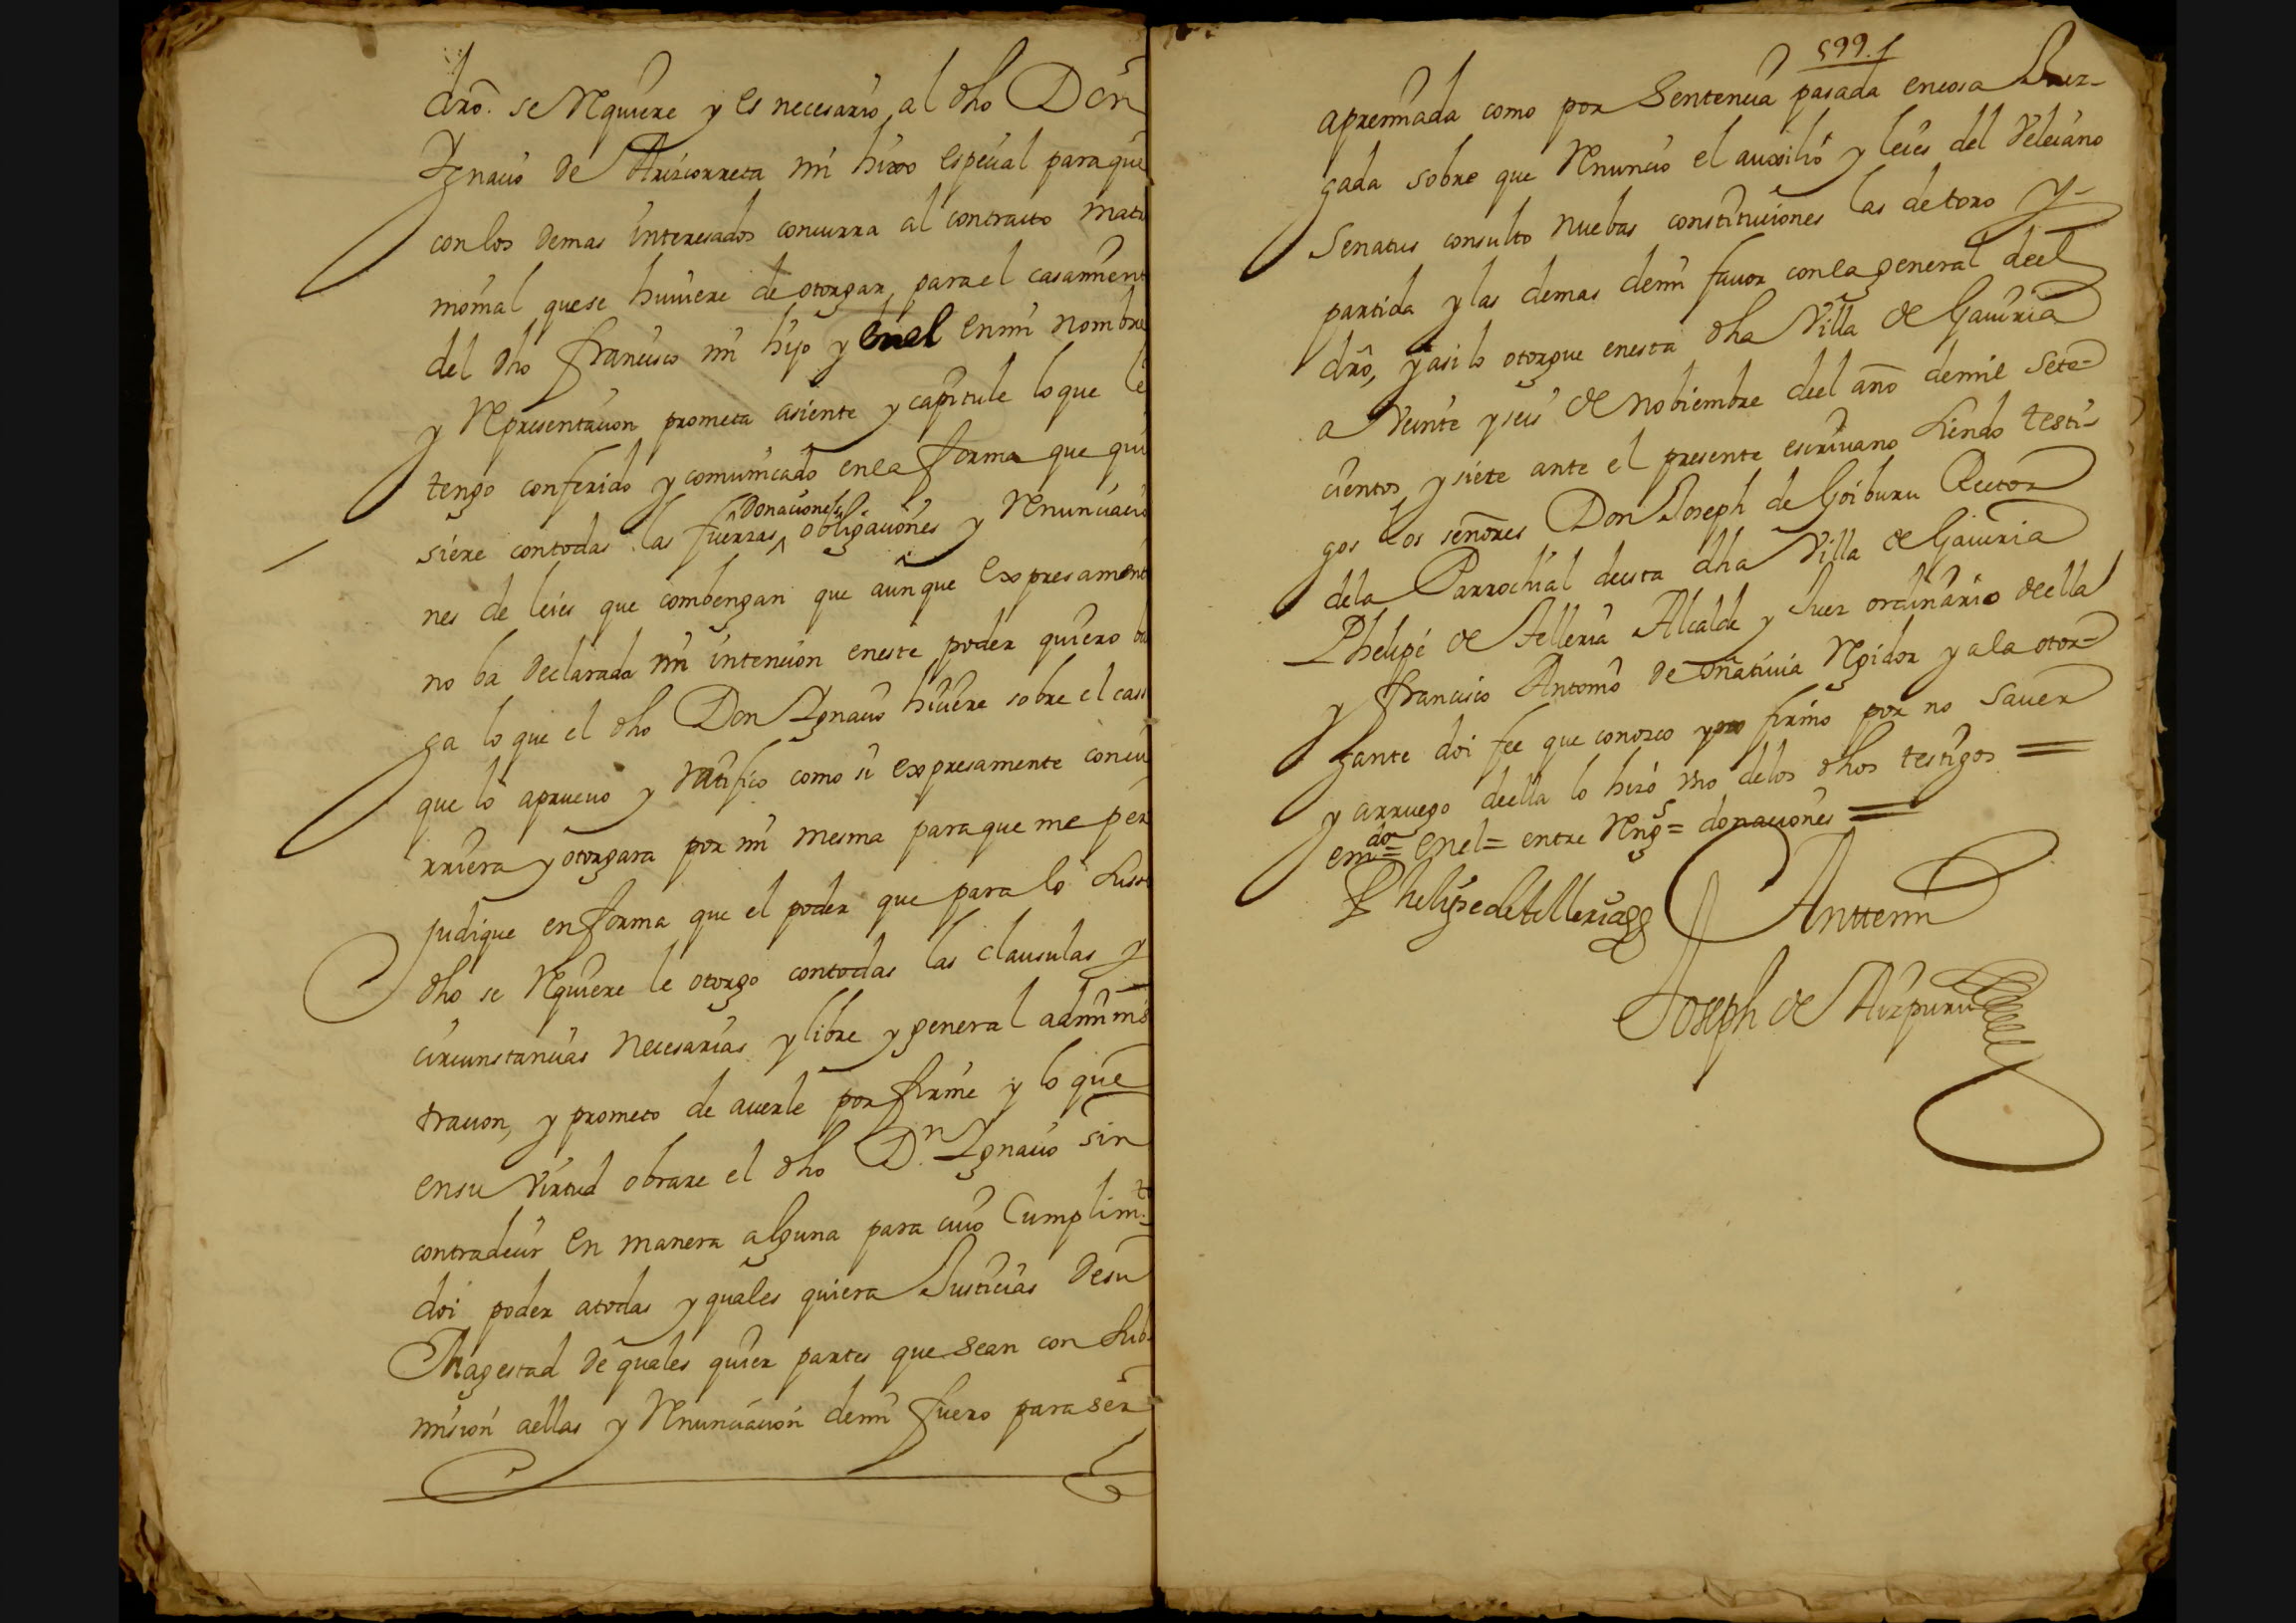 dro. se Requiere y es necesario al dho Don
Ygnacio de Arizcorreta mi hixo especial para que
con los demas interesados concurra al contracto matri
monial que se huuiere de otorgar para el casamient
del dho Francisco mi hijo y en el en mi nombre
y Representacion prometa asiente y capitule lo que le
tengo conferido y comunicado en la forma que qui
siere con todas las fuerzas ^ donaciones obligaciones y Renunciacio
nes de leies que combengan que aunque expresament
no ba declarada mi intencion en este poder quiero ba
ga lo que el dho Don Ygnacio hiciere sobre el caso
que lo aprueuo y ratifico como si expresamente concu
rriera y otorgara por mi mesma para que me per
judique en forma que el poder que para lo suso
dho se Requiere le otorgo con todas las clausulas y
circunstancias necesarias y libre y general adminis
tracion, y prometo de auerle por firme y lo que
en su virtud obrare el dho Dn. Ygnacio sin
contradecir en manera alguna para cuio Cumplimto.
doi poder a todas y quales quiera Justicias de su
Magestad de quales quier partes que sean con sub
mision a ellas y Renunciacion de mi fuero para ser
599.
apremiada como por Sentencia pasada en cosa Juz-
gada sobre que Renuncio el auxilio y leies del Veleiano
Senatus consulto nuebas constituciones las de toro y
partida y las demas de mi fauor con la general de el
dro, y asi lo otorgue en esta dha Villa de Gauiria
a Veinte y seis de Nobiembre de el año de mil sete=
cientos y siete ante el presente escriuano siendo testi-
gos los señores Don Joseph de Goiburu Rector
de la Parrochial de esta dha Villa de Gauiria
Phelipe de Telleria Alcalde y Juez ordinario de ella
y Francisco Antonio de Oñatiuia Regidor y a la otor=
gante doi fee que conozco y no firmo por no sauer
y a rruego de ella lo hizo vno de los dhos testigos =
emdo= en el= entre Rengs= donaciones =
Phelipe de telleria
Anttemi
Joseph de Aizpuru